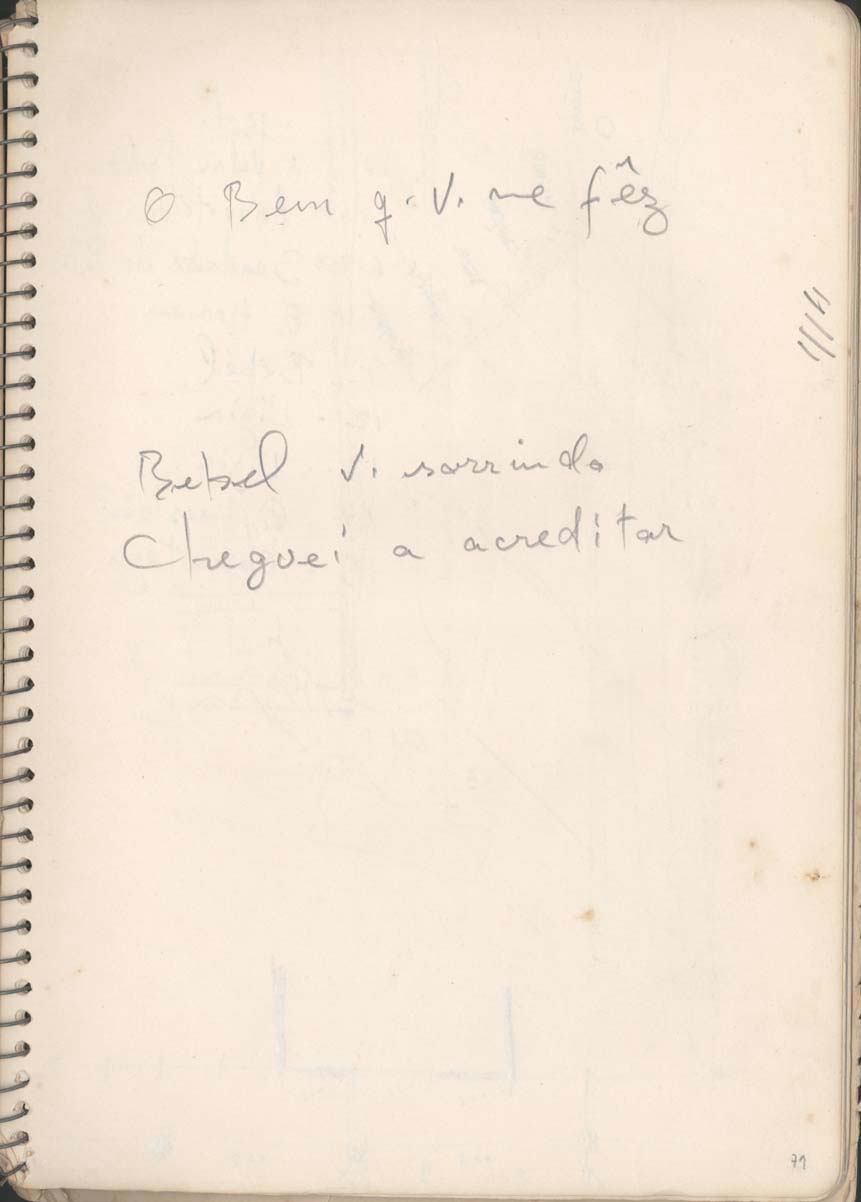 O Bem q. V. me fêz
Bebel V. sorrindo
Cheguei a acreditar
71